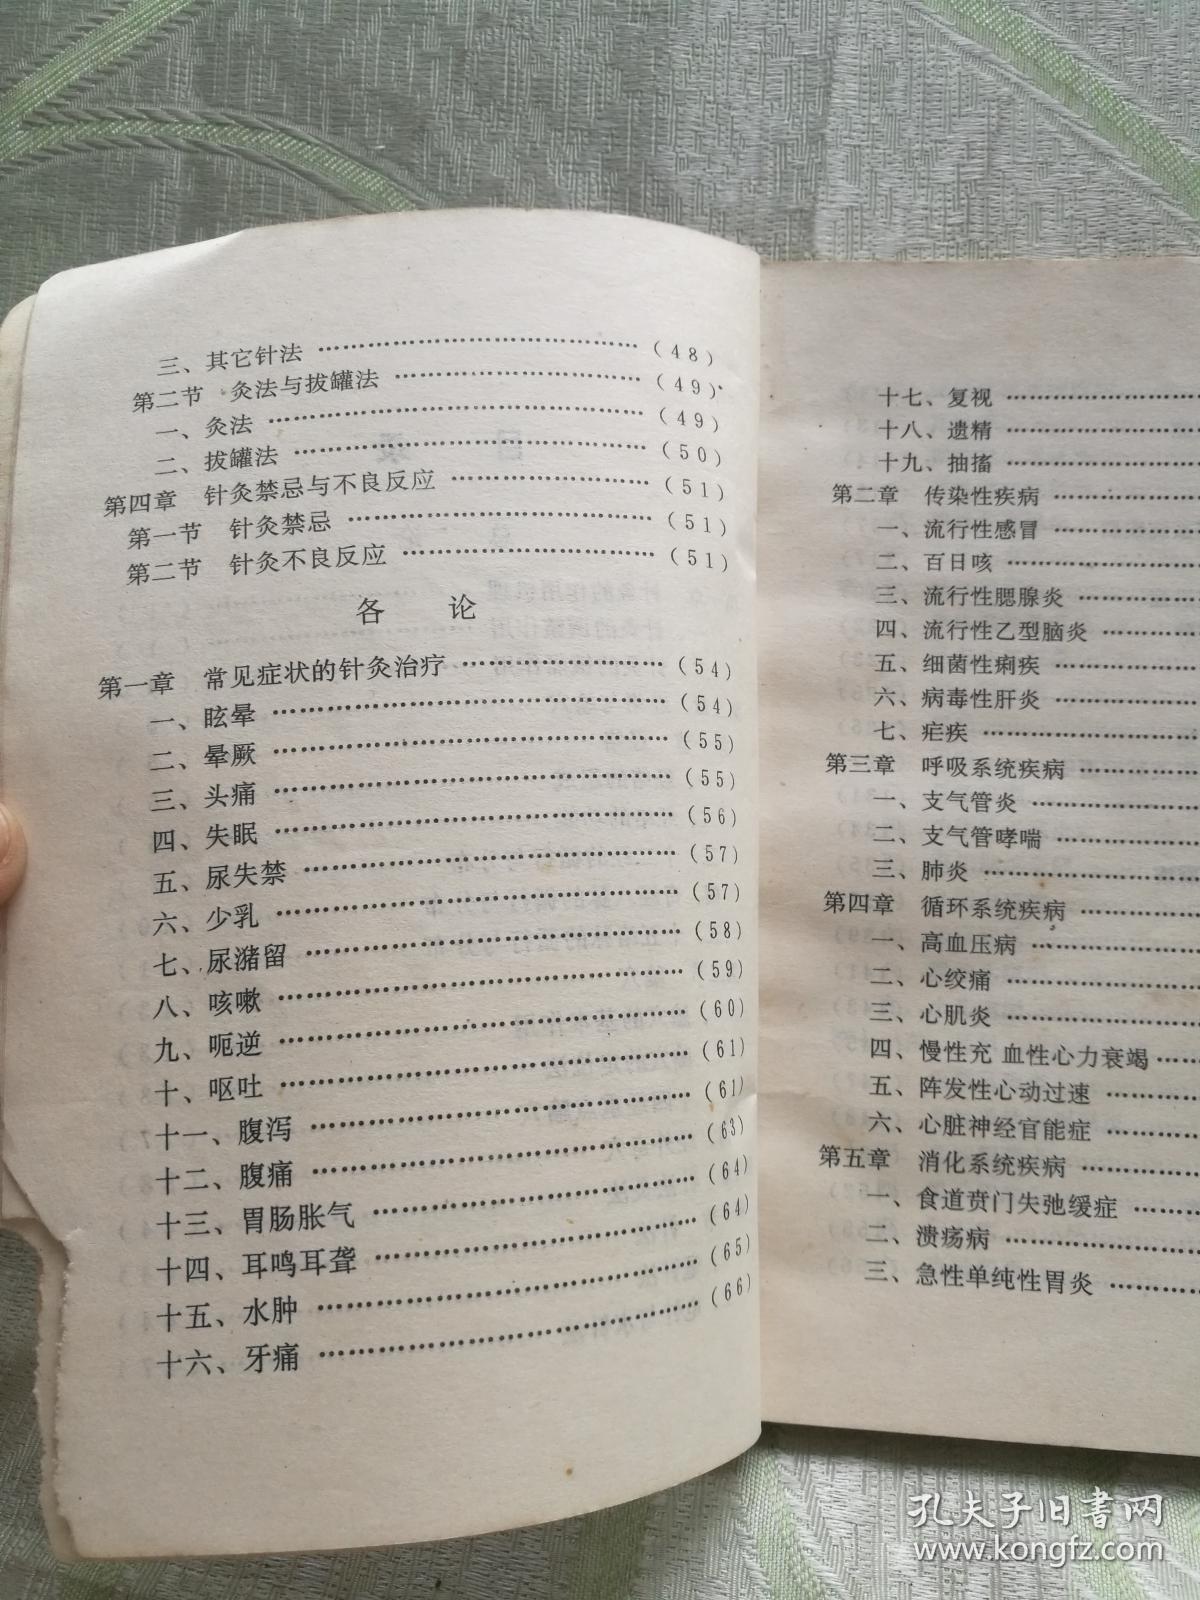 三、其它针法 ………………………………(48)
第二节 灸法与拔罐法 ………………………(49)
一、灸法 ……………………………………(49)
二、拔罐法 …………………………………(50)
第四章 针灸禁忌与不良反应 …………………(51)
第一节 针灸禁忌 ……………………………(51)
第二节 针灸不良反应 ………………………(51)
各 论
第一章 常见症状的针灸治疗 …………………(54)
一、眩晕 ……………………………………(54)
二、晕厥 ……………………………………(55)
三、头痛 ……………………………………(55)
四、失眠 ……………………………………(56)
五、尿失禁 …………………………………(57)
六、少乳 ……………………………………(57)
七、尿潴留 …………………………………(58)
八、咳嗽 ……………………………………(59)
九、呃逆 ……………………………………(60)
十、呕吐 ……………………………………(61)
十一、腹泻 …………………………………(61)
十二、腹痛 …………………………………(63)
十三、胃肠胀气 ……………………………(64)
十四、耳鸣耳聋 ……………………………(64)
十五、水肿 …………………………………(65)
十六、牙痛 …………………………………(66)
十七、复视 ………………
十八、遗精 ………………
十九、抽搐 ………………
第二章 传染性疾病 …………
一、流行性感冒 …………
二、百日咳 ………………
三、流行性腮腺炎 …………
四、流行性乙型脑炎 ………
五、细菌性痢疾 …………
六、病毒性肝炎 …………
七、疟疾 ………………
第三章 呼吸系统疾病 ………
一、支气管炎 ……………
二、支气管哮喘 …………
三、肺炎 ………………
第四章 循环系统疾病 ………
一、高血压病 ……………
二、心绞痛 ………………
三、心肌炎 ………………
四、慢性充 血性心力衰竭……
五、阵发性心动过速 ………
六、心脏神经官能症 ………
第五章 消化系统疾病 ………
一、食道贲门失弛缓症 ……
二、溃疡病 ………………
三、急性单纯性胃炎 ………
孔夫子旧书网
www.kongfz.com